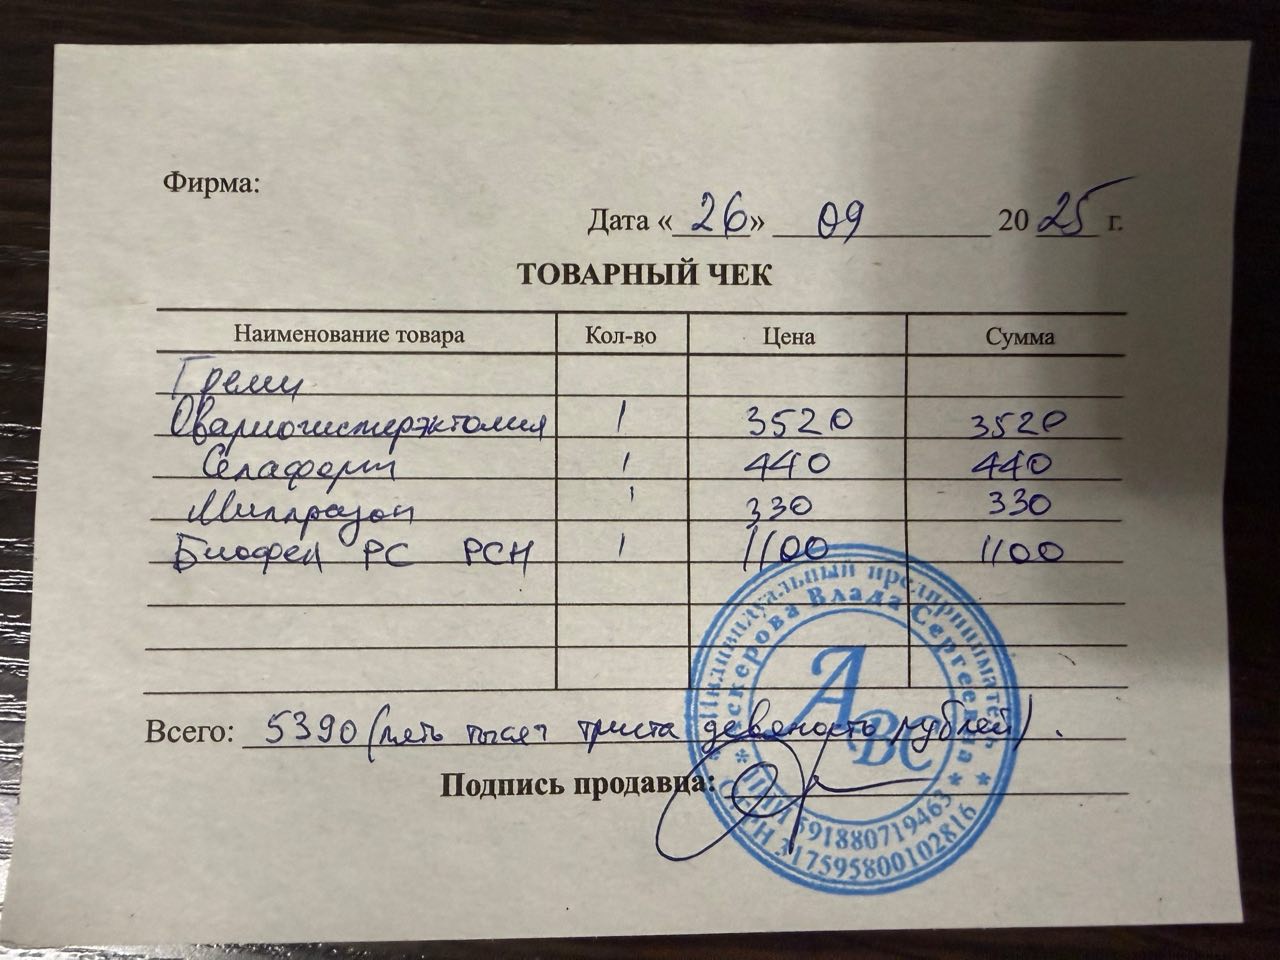 Фирма:
Дата «26» 09 2025 г.
ТОВАРНЫЙ ЧЕК
Наименование товара Кол-во Цена Сумма
Греми
Овариогистерэктомия 1 3520 3520
Селаферт 1 440 440
Милпразон 1 330 330
Биофел PC PCH 1 1100 1100
Всего: 5390 (пять тысяч триста девяность рублей).
Подпись продавца:
Индивидуальный предприниматель
Аскерова Влада Сергеевна
АВС
* ИНН 591880719463 *
* ОГРН 317595800102816 *